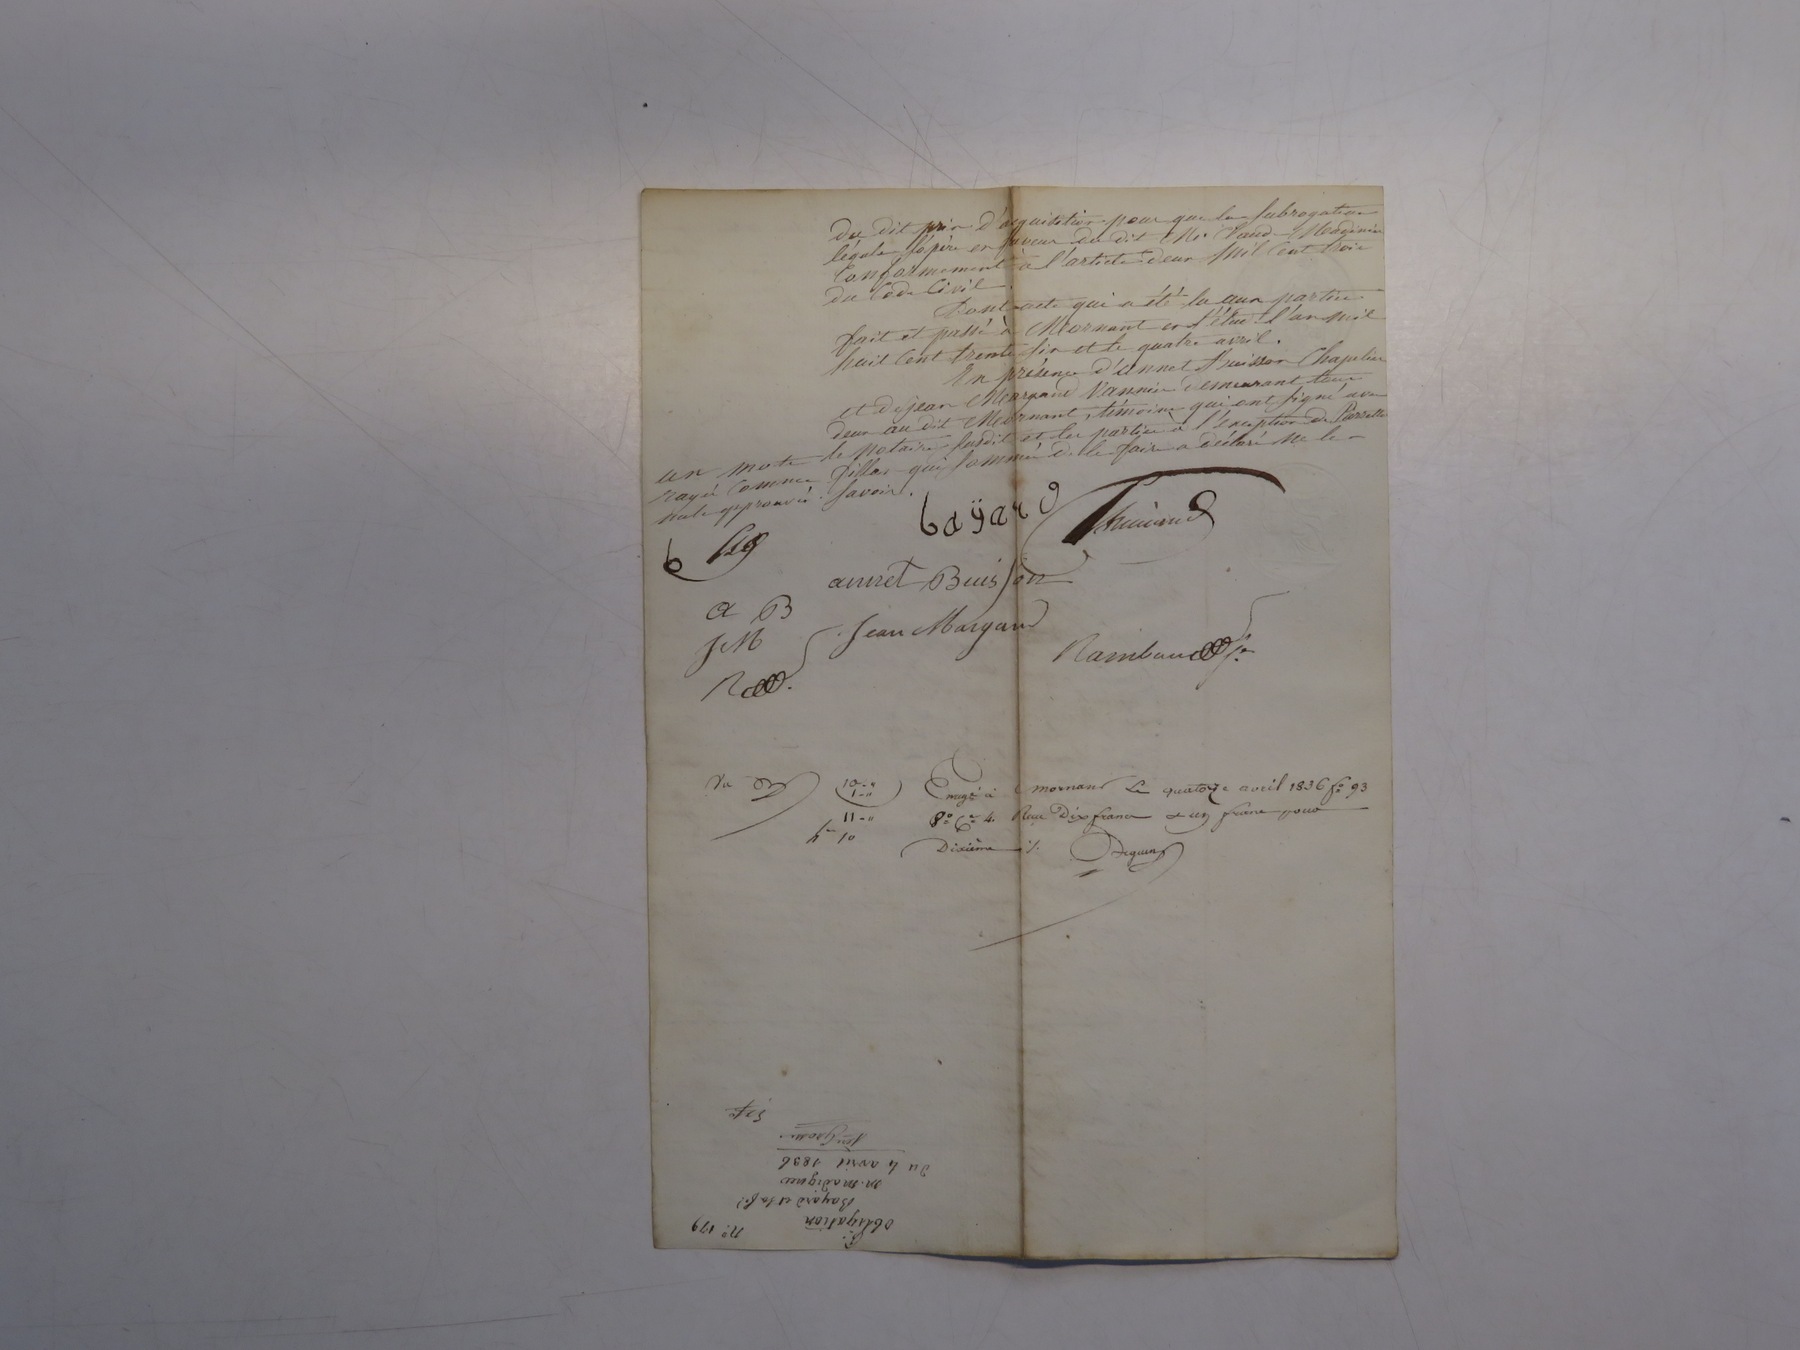 du dit prix d'acquisition pour que la subrogation
légale s'opère en faveur du dit Mr
Conformément à l'article deux mil cent trois
du Code Civil.
Dont acte qui a été lu aux parties
fait et passé à Mornant en l'étude l'an mil
huit cent trente six et le quatre avril.
En présence d'annet Buisson Chapelier
et de jean Margand Vannier demeurant tous
deux au dit Mornant, témoins qui ont signé avec
le Notaire susdit et les parties à l'exception de Pierrette
qui sommée de le faire a déclaré ne le
savoir.
un mot
rayé comme
nul approuvé.
bayard
b
annet Buisson
a B
Jean Margand
J M
R
Vu
10-"
1-"
11-"
à mornant Le quatorze avril 1836 fo 93
Ro Ce 4. Reçu Dix francs et un franc pour
Dixième
No 179
Obligation
Bayard et sa fe
m. madignier
Du 4 avril 1836